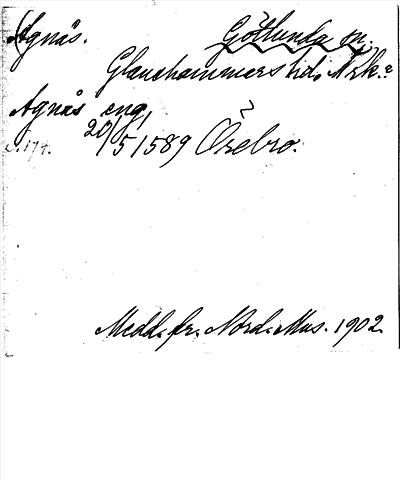 Agnäs. Götlunda sn.
Glanshammars hd, Nrke
Agnäs äng,
S. 174. 20/5 1589 Örebro.
Medd. fr. Nord. Mus. 1902.